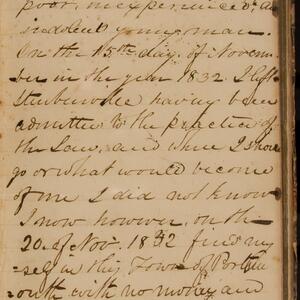 poor, inexperienced, an
indolent young man.
On the 15th day of Novem-
ber in the year 1832. I left
Steubenville having been
admitted to the practice of
the Law, and where I should
go or what would become
of me I did not know
I now however, on the
20. of Nov. 1832 find my
-self in this Town of Portsm
-outh with no money and